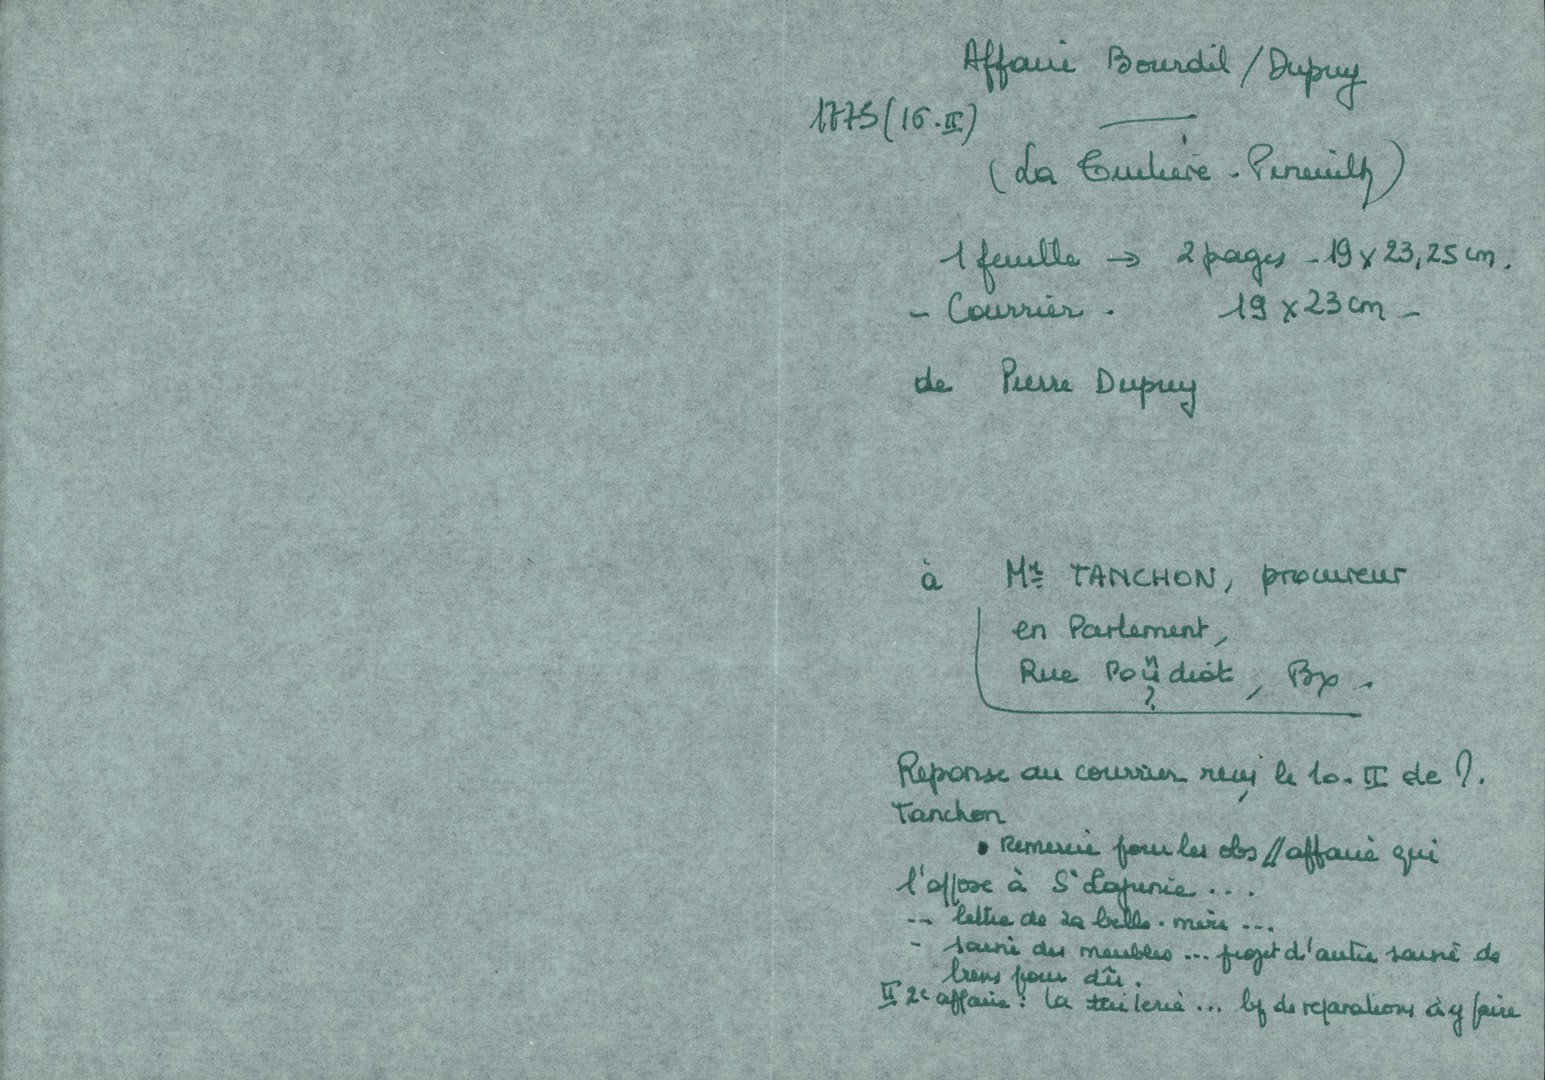 Affaire Bourdil / Dupuy
1773 (16.II)
(La Tuilière - Pineuilh)
1 feuille → 2 pages - 19 x 23,25 cm.
- Courrier. 19 x 23 cm -
de Pierre Dupuy
à Mr TANCHON, procureur
en Parlement,
Rue Poudiot, Bx.
n
?
Réponse au courrier reçu le 10.II de ?.
Tanchon
• Remercie pour les obs // affaire qui
l'oppose à St Lapunie ...
-- lettre de sa belle-mère ...
- saisie des meubles ... projet d'autre saisie de
biens pour dû.
II 2e affaire : la tuilerie ... bp de réparations à y faire